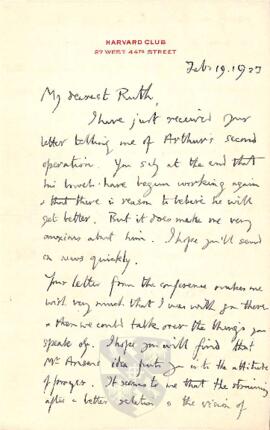 HARVARD CLUB
27 WEST 44TH STREET
Feb 19. 1923
My dearest Ruth,
I have just received your
letter telling me of Arthur's second
operation. You say at the end that
his bowels have begun working again
& that there is reason to believe he will
get better. But it does make me very
anxious about him. I hope you'll send
on news quickly.
Your letter from the conference makes me
wish very much that I was with you there
& then we could talk over the things you
speak of. I hope you will find that
Mr idea puts you into the attitude
of prayer. It seems to me that the straining
after a better relation & the vision of